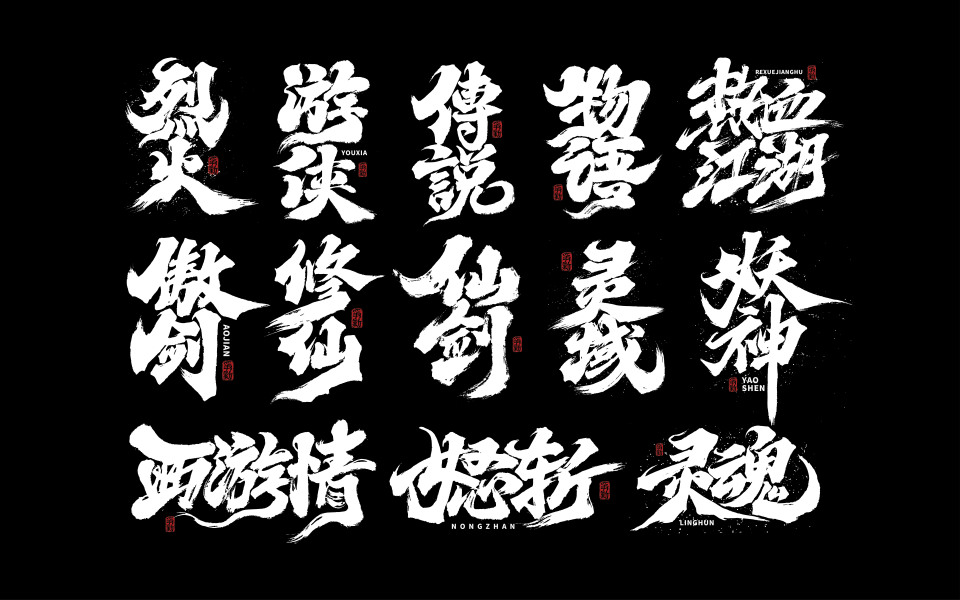 烈火
游侠
YOUXIA
傳説
物语
热血江湖
REXUEJIANGHU
傲剑
AOJIAN
修仙
仙剑
灵域
妖神
YAO
SHEN
西游情
怒斩
NONGZHAN
灵魂
LINGHUN